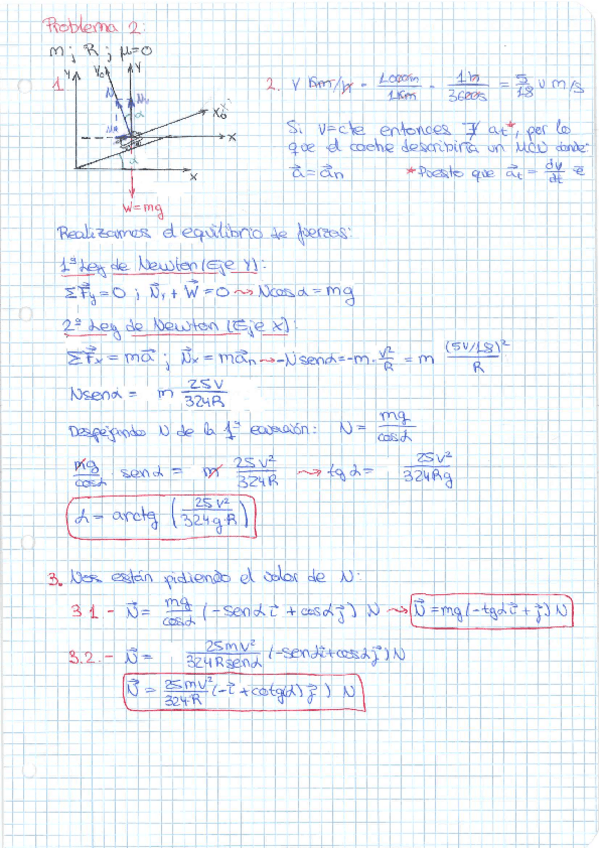 Problema 2:
m ; R ; μ=0
1.
Y
Y₀
Y
N
Nᵧ
α
X₀
X
α
X
W=mg
2. v Km/h · 1000m/1Km · 1h/3600s = 5/18 v m/s
Si v=cte entonces ∄ at*, por lo
que el coche describiría un MCU donde:
a⃗ = a⃗n *Puesto que a⃗t = dv/dt e⃗
Realizamos el equilibrio de fuerzas:
1ª Ley de Newton (Eje Y):
ΣF⃗y = 0 ; N⃗y + W⃗ = 0 ⇝ Ncosα = mg
2ª Ley de Newton (Eje X):
ΣF⃗x = ma⃗ ; N⃗x = ma⃗n ⇝ -Nsenα = -m · v²/R = m (5v/18)²/R
Nsenα = m 25v/324R
Despejando N de la 1ª ecuación: N = mg/cosα
mg/cosα senα = m 25v²/324R ⇝ tgα = 25v²/324Rg
α = arctg (25v²/324gR)
3. Nos están pidiendo el valor de N:
3.1.- N⃗ = mg/cosα (-senα i⃗ + cosα j⃗) N ⇝ N⃗ = mg(-tgα i⃗ + j⃗) N
3.2.- N⃗ = 25mv²/324Rsenα (-senα i⃗ + cosα j⃗) N
N⃗ = 25mv²/324R (-i⃗ + cotgα) j⃗ ) N